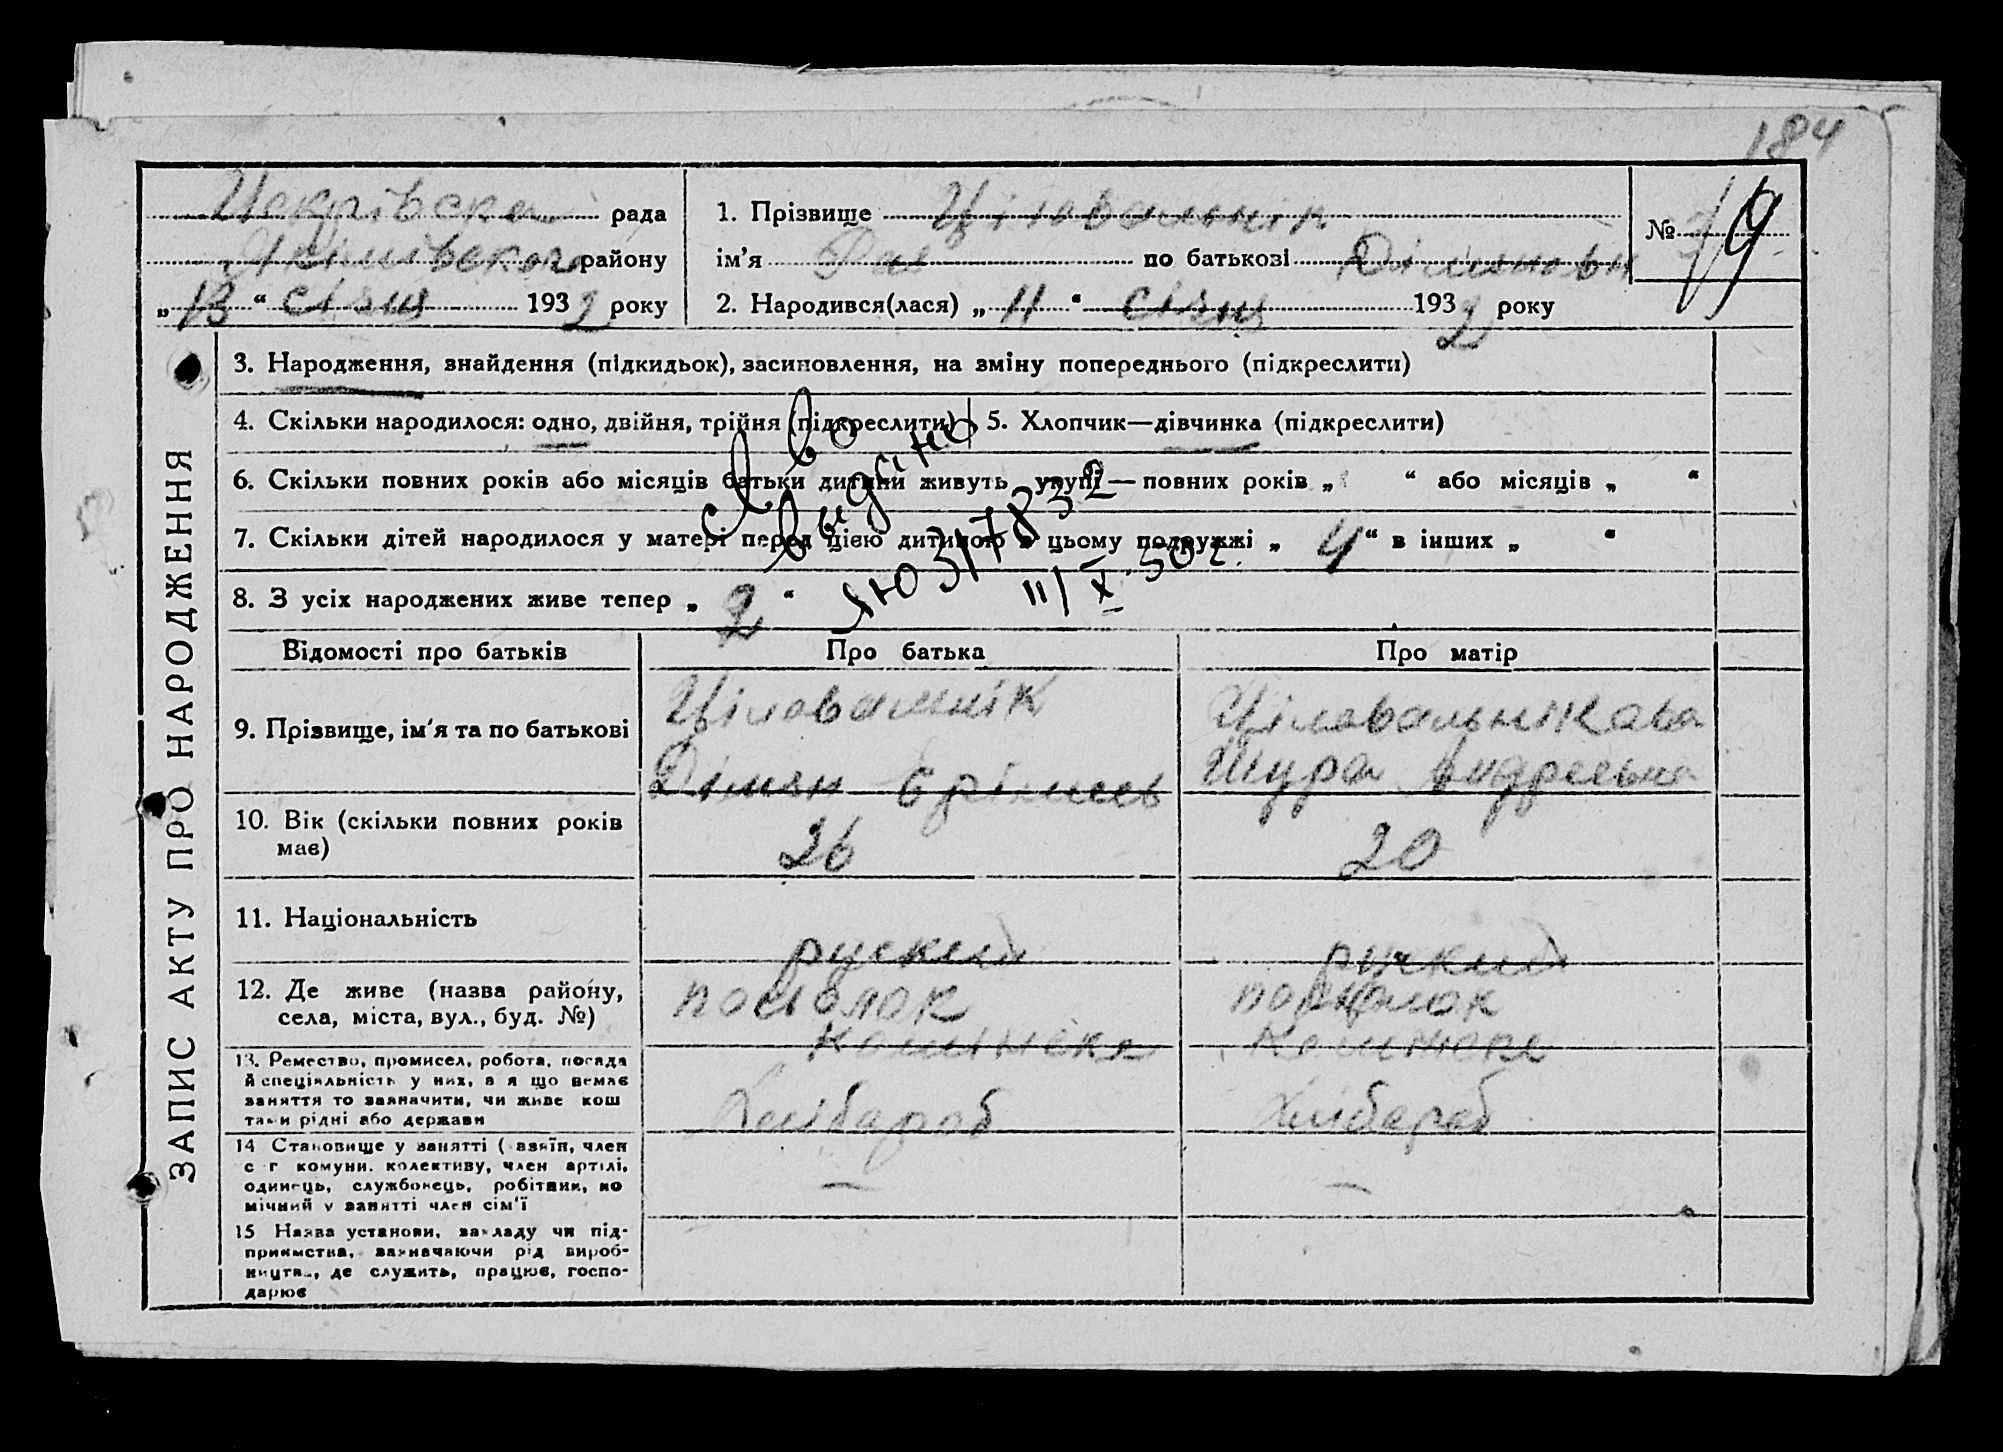 184
рада
району
„ 13 “ січня 1932 року
1. Прізвище Ціловальнік
ім’я Рая по батькові
2. Народився(лася) „ 11 “ січня 1932 року
№ 9
ЗАПИС АКТУ ПРО НАРОДЖЕННЯ
3. Народження, знайдення (підкидьок), засиновлення, на зміну попереднього (підкреслити)
4. Скільки народилося: одно, двійня, трійня (підкреслити)
5. Хлопчик—дівчинка (підкреслити)
6. Скільки повних років або місяців батьки дитини живуть укупі—повних років „ “ або місяців „ “
7. Скільки дітей народилося у матері перед цією дитиною в цьому подружжі „ 4 “ в інших „ “
8. З усіх народжених живе тепер „ 2 “
св во
выдано
ЯЮ 317832
11/X 50 г.
Відомості про батьків
Про батька
Про матір
9. Прізвище, ім’я та по батькові
Ціловальнік
Ціловальнікова
Шура Андреевна
10. Вік (скільки повних років
має)
26
20
11. Національність
руский
руский
12. Де живе (назва району,
села, міста, вул., буд. №)
посьолок
посьолок
13. Ремество, промисел, робота, посада
й спеціяльність у них, а я що немає
заняття то зазначити, чи живе кош
тами рідні або держави
Хлібароб
Хлібароб
14 Становище у занятті (хазяїн, член
с г комуни. колективу, член артілі,
одинець, службовець, робітник, по
мічний у занятті член сім’ї
—
—
15 Назва установи, закладу чи під-
приємства, зазначаючи рід вироб-
ництва, де служить, працює, госпо-
дарює